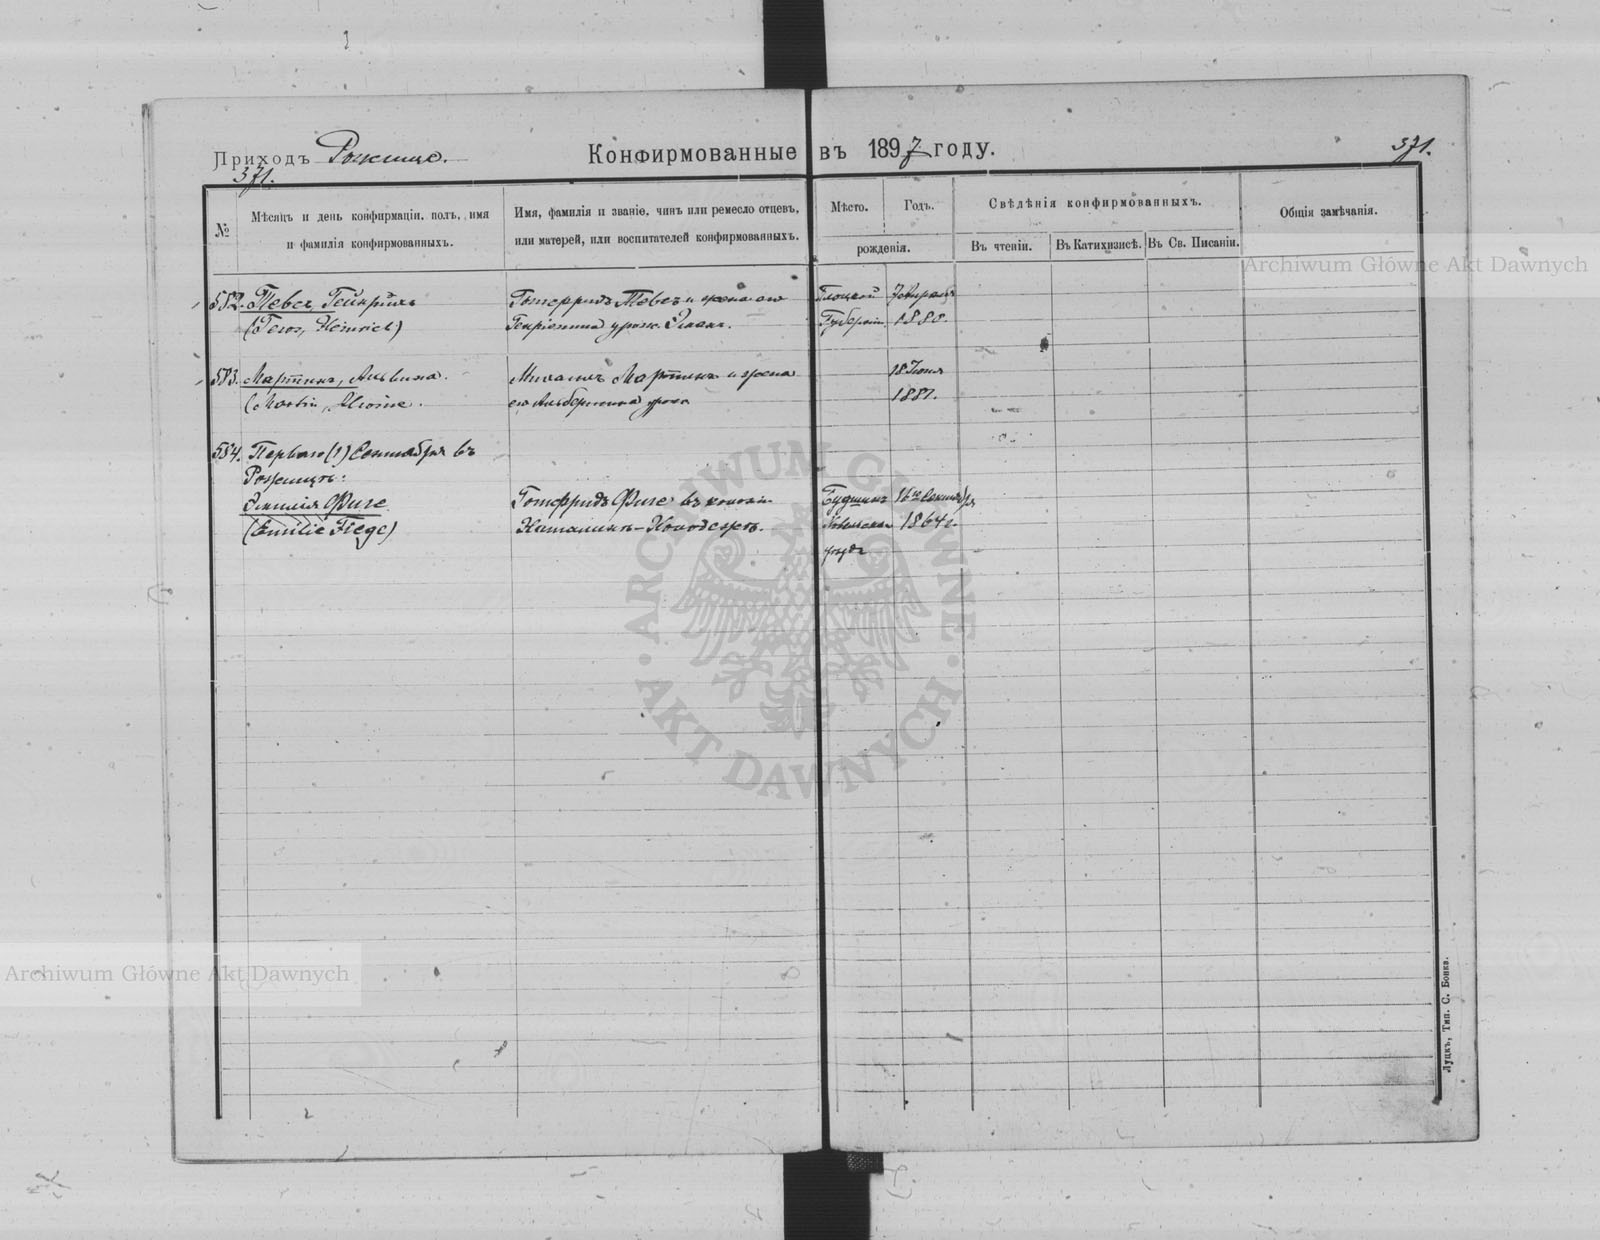 Приходъ Рожище.
Конфирмованные въ 1897 году.
371.
371.
№
Мѣсяцъ и день конфирмаціи, полъ, имя
и фамилія конфирмованныхъ.
Имя, фамилія и званіе, чинъ или ремесло отцевъ,
или матерей, или воспитателей конфирмованныхъ.
Мѣсто.
Годъ.
рожденія.
Свѣдѣнія конфирмованныхъ.
Въ чтеніи.
Въ Катихизисѣ.
Въ Св. Писаніи.
Общія замѣчанія.
582. Гейнрихъ
Heinrich)
Готфридъ и жена его
урож.
Плоцкой
Губерніи.
1880.
583. Мартинъ, Альвина.
(Martin, Alwine.
Мартинъ и жена
его Альбертина урож
18 Іюня
1881.
584. Перваго (1) Сентября въ
Рожищѣ:
Эмилія Фиге
(Emilie Fiege)
Готфридъ Фиге въ колоніи
16го Сентября
1864 г.
уѣзда
Archiwum Główne Akt Dawnych
ARCHIWUM GŁÓWNE
AKT DAWNYCH
Archiwum Główne Akt Dawnych
Луцкъ, Тип. С. Бонка.